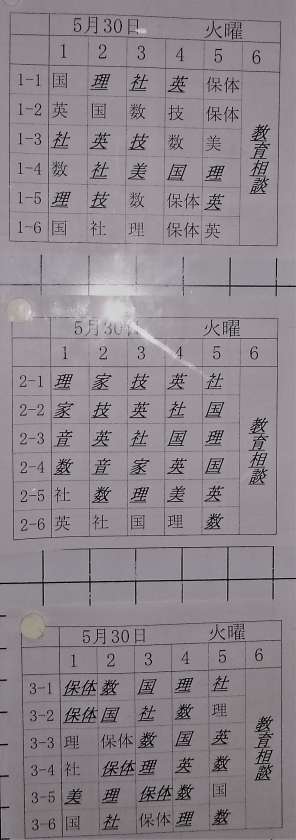 5月30日 火曜
1 2 3 4 5 6
1-1 国 理 社 英 保体
1-2 英 国 数 技 保体
1-3 社 英 技 数 美
1-4 数 社 美 国 理
1-5 理 技 数 保体 英
1-6 国 社 理 保体 英
教育相談
5月30日 火曜
1 2 3 4 5 6
2-1 理 家 技 英 社
2-2 家 技 英 社 国
2-3 音 英 社 国 理
2-4 数 音 家 英 国
2-5 社 数 理 美 英
2-6 英 社 国 理 数
教育相談
5月30日 火曜
1 2 3 4 5 6
3-1 保体 数 国 理 社
3-2 保体 国 社 数 理
3-3 理 保体 数 国 英
3-4 社 保体 理 英 数
3-5 美 理 保体 数 国
3-6 国 社 保体 理 数
教育相談